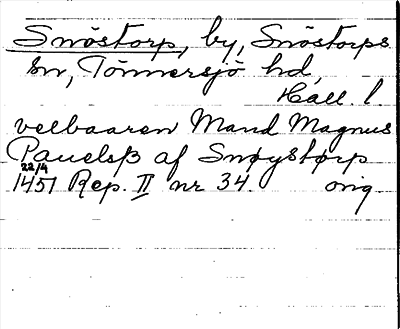 Snöstorp, by, Snöstorps
sn, Tönnersjö hd,
Hall. l.
velbaaren Mand Magnus
Pauelsß af Snøystørp
22/4
1451 Rep. II nr 34. orig